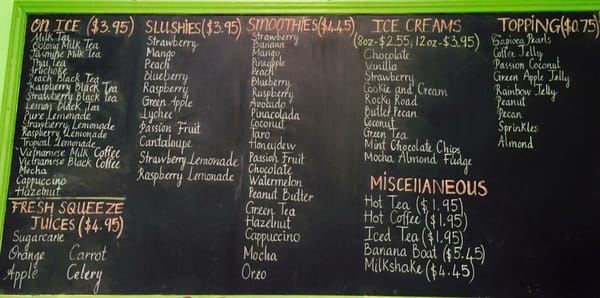 ON ICE ($3.95)
Milk Tea
Oolong Milk Tea
Jasmine Milk Tea
Thai Tea
Artichoke
Peach Black Tea
Raspberry Black Tea
Strawberry Black Tea
Lemon Black Tea
Pure Lemonade
Strawberry Lemonade
Raspberry Lemonade
Tropical Lemonade
Vietnamese Milk Coffee
Vietnamese Black Coffee
Mocha
Cappuccino
Hazelnut
FRESH SQUEEZE
JUICES ($4.95)
Sugarcane
Orange Carrot
Apple Celery
SLUSHIES ($3.95)
Strawberry
Mango
Peach
Blueberry
Raspberry
Green Apple
Lychee
Passion Fruit
Cantaloupe
Strawberry Lemonade
Raspberry Lemonade
SMOOTHIES ($4.45)
Strawberry
Banana
Mango
Pineapple
Peach
Blueberry
Raspberry
Avocado
Pinacolada
Coconut
Taro
Honeydew
Passion Fruit
Chocolate
Watermelon
Peanut Butter
Green Tea
Hazelnut
Cappuccino
Mocha
Oreo
ICE CREAMS
(8oz-$2.55, 12oz-$3.95)
Chocolate
Vanilla
Strawberry
Cookie and Cream
Rocky Road
Butter Pecan
Coconut
Green Tea
Mint Chocolate Chips
Mocha Almond Fudge
MISCELLANEOUS
Hot Tea ($1.95)
Hot Coffee ($1.95)
Iced Tea ($1.95)
Banana Boat ($5.45)
Milkshake ($4.45)
TOPPING ($0.75)
Tapioca Pearls
Coffee Jelly
Passion Coconut
Green Apple Jelly
Rainbow Jelly
Peanut
Pecan
Sprinkles
Almond